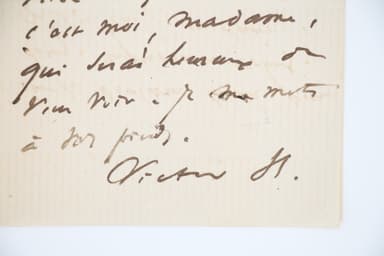 c'est moi, madame,
qui serai heureux de
vous voir. Je me mets
à vos pieds.
Victor H.